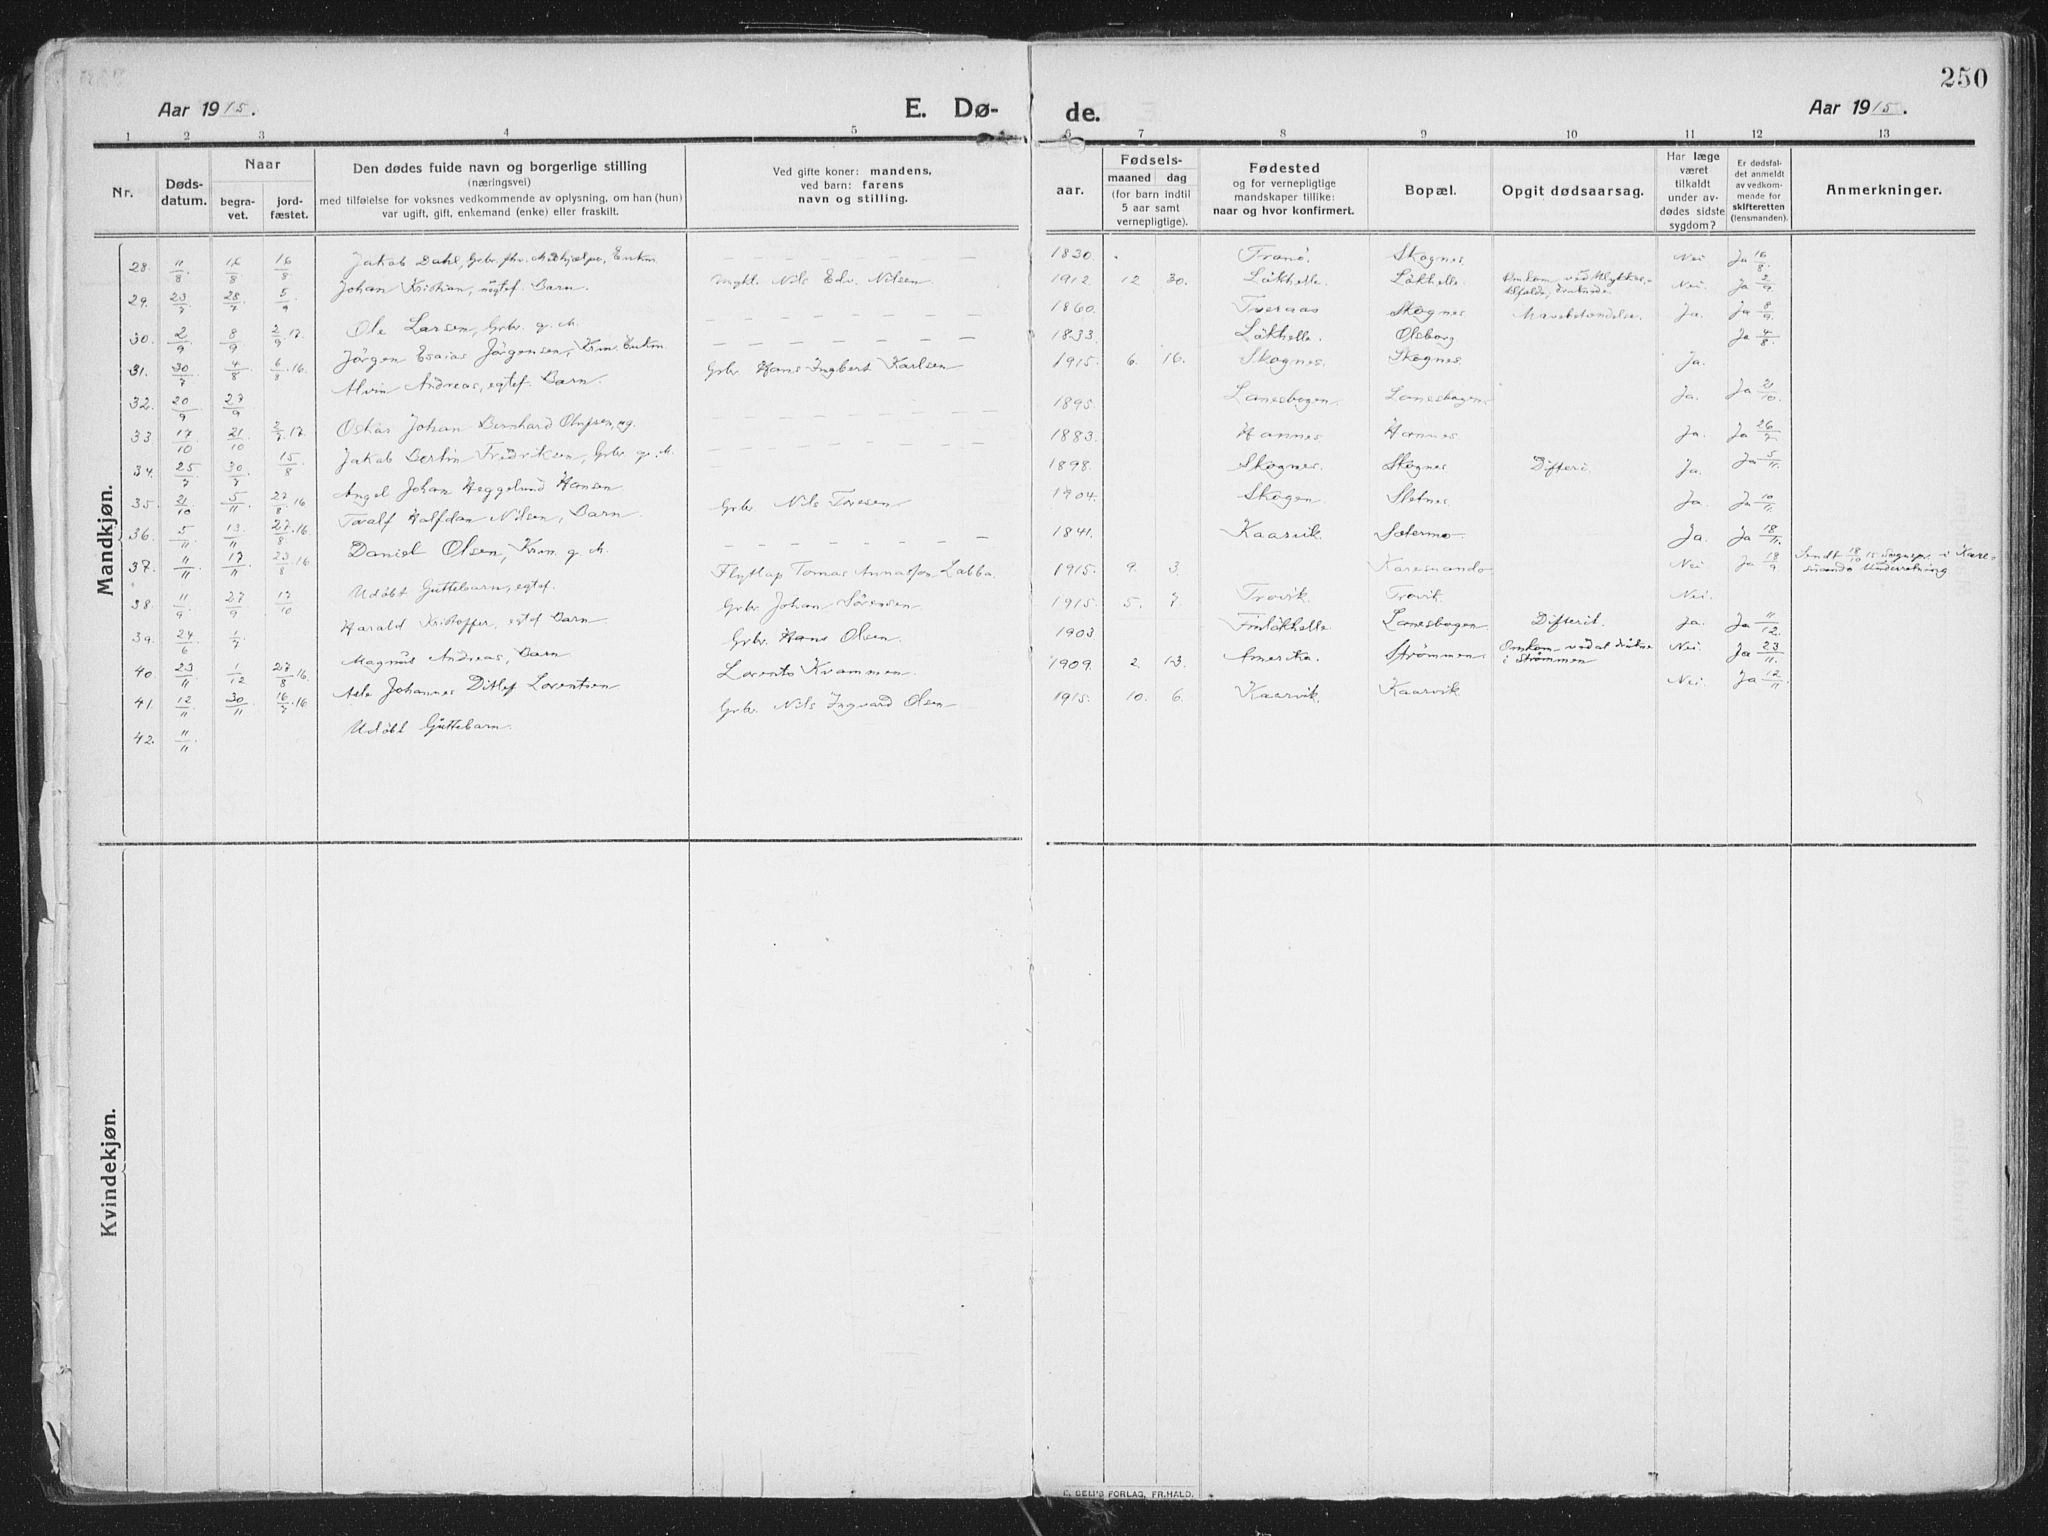 250
Aar 1915. E. Dø- de. Aar 1915.
1 2 3 4 5 6 7 8 9 10 11 12 13
Nr.
Døds-
datum.
Naar
begra-
vet.
jord-
fæstet.
Den dødes fulde navn og borgerlige stilling
(næringsvei)
med tilføielse for voksnes vedkommende av oplysning, om han (hun)
var ugift, gift, enkemand (enke) eller fraskilt.
Ved gifte koner: mandens,
ved barn: farens
navn og stilling.
aar.
Fødsels-
maaned dag
(for barn indtil
5 aar samt
vernepligtige).
Fødested
og for vernepligtige
mandskaper tillike:
naar og hvor konfirmert.
Bopæl.
Opgit dødsaarsag.
Har læge
været
tilkaldt
under av-
dødes sidste
sygdom?
Er dødsfal-
det anmeldt
av vedkom-
mende for
skifteretten
(lensmanden).
Anmerkninger.
Mandkjøn.
28. 11/8 16/8 16/8 Jakob Dahl, Gbr. Enkm. 1830. Tranö. Skognes. Nei Ja 16/8.
29. 23/7 28/7 5/9 Johan Kristian, uegtef. Barn. Ungkl. Nils Edv. Nilsen 1912. 12. 30. Lökhelle. Lökhelle. Omkom ved Ulykkes-
tilfælde, druknede Nei. Ja 2/9
30. 2/9 8/9 2/9.17. Ole Larsen, Gbr. g. M. 1860. Tveraas Skognes Mavebetændelse. Ja. Ja 8/9
31. 30/7 4/8 6/8.16. Jörgen Esaias Jörgensen, Krm. Enkm. 1833. Lökhelle. Olsborg Ja 4/8.
32. 20/9 27/9 Alvin Andreas, egtef. Barn. Gbr. Hans Ingbert Karlsen 1915. 6. 16. Skognes. Skognes Ja.
33 17/10 21/10 2/7.17. Oskar Johan Bernhard Olufsen, ug. 1895. Lanesbogen. Lanesbogen. Ja. Ja 21/10.
34. 25/7 30/7 15/8 Jakob Bertin Fredriksen, Gbr. g. M. 1883. Hannes Hannes Ja. Ja 26/7
35. 21/10 5/11 27/8.16 Angel Johan Heggelund Hansen 1898. Skognes. Skognes Difteri. Ja. Ja 5/11.
36. 5/11 13/11 27/8.16. Toralf Halfdan Nilsen, Barn. Gbr. Nils Toresen 1904. Skogen Sletnes Ja. Ja 10/11.
37. 11/11 17/11 23/8.16 Daniel Olsen, Krm. g. M. 1841. Kaarvik. Sætermo. Ja. Ja 18/11.
38. 11/9 27/9 17/10 Udöbt Guttebarn, egtef. Flytlap Tomas Annasson Labba. 1915. 9. 3. Karesuando Nei Ja 18/9 Sendt 18/10 15 Sognepr. i Kare-
suando Underretning
39. 24/6 1/7 Harald Kristoffer, egtef. Barn Gbr. Johan Sörensen 1915. 5. 7 Trovik. Trovik. Nei.
40. 23/11 1/12 27/8.16. Magnus Andreas, Barn Gbr. Hans Olsen. 1903 Finlökhelle Lanesbogen Difterit. Ja. Ja 11/12.
41. 12/11 30/11 16/7.16 Asle Johannes Ditlef Lorentsen Lorents Kvammen. 1909. 2. 13. Amerika. Strömmen Omkom ved at drukne
i Strömmen Nei. Ja 23/11.
42. 11/11 Udöbt Guttebarn. Gbr. Nils Ingvard Olsen 1915. 10. 6. Kaarvik. Kaarvik. Nei. Ja 12/11
Kvindekjøn.
E. SEM'S FORLAG, FR.HALD.